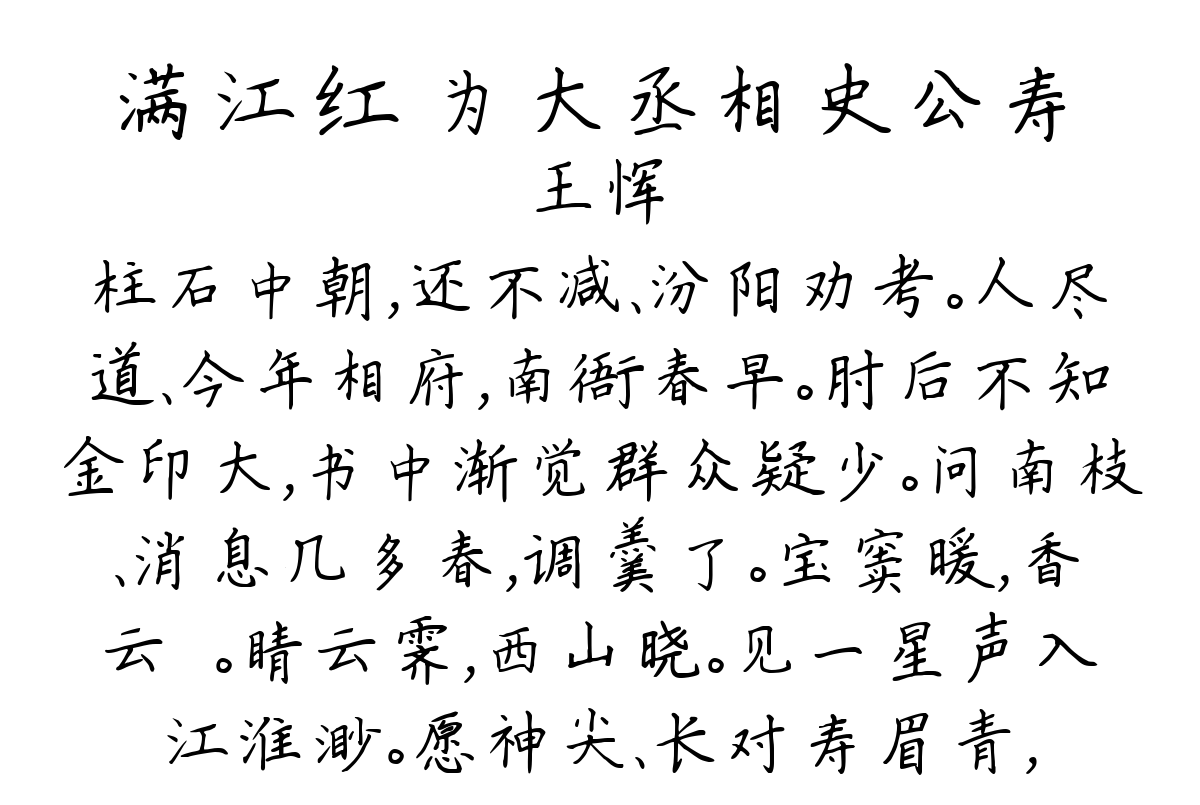 满江红 为大丞相史公寿
王恽
柱石中朝,还不减、汾阳劝考。人尽
道、今年相府,南衙春早。肘后不知
金印大,书中渐觉群众疑少。问南枝
、消息几多春,调羹了。宝窦暖,香
云 。晴云霁,西山晓。见一星声入
江淮渺。愿神尖、长对寿眉青,